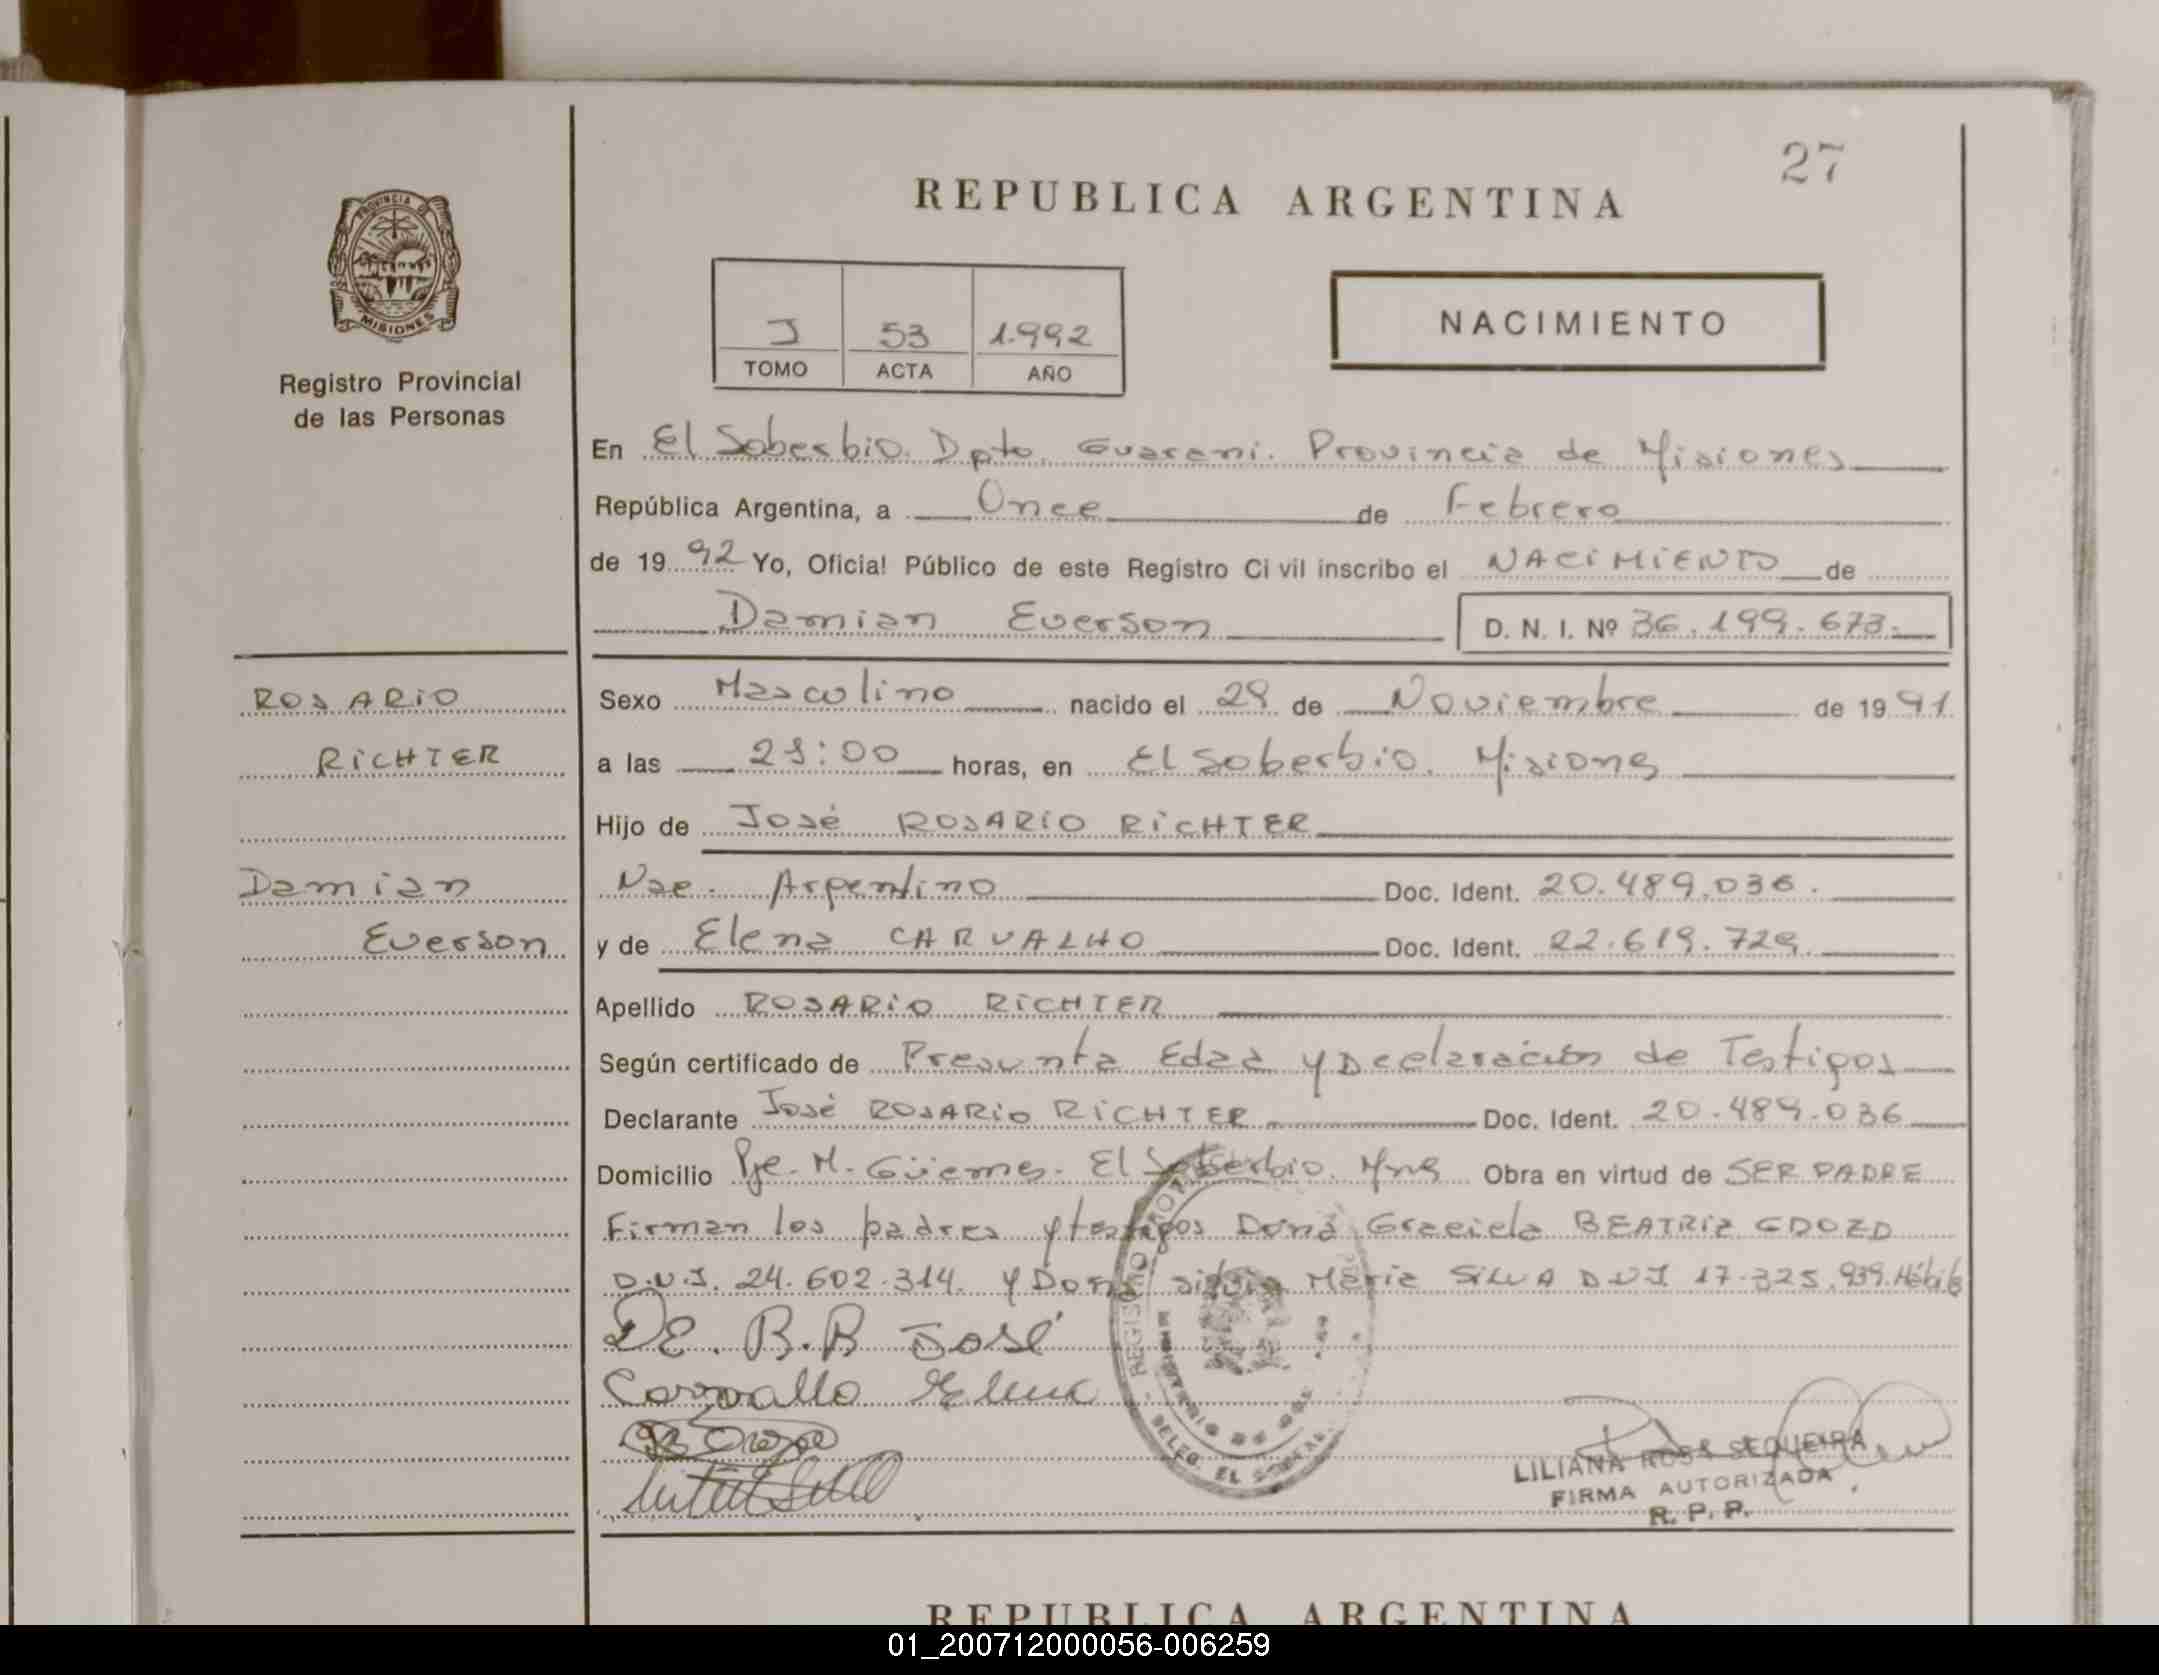 27
REPUBLICA ARGENTINA
PROVINCIA DE
MISIONES
Registro Provincial
de las Personas
J 53 1.992
TOMO ACTA AÑO
NACIMIENTO
En El Soberbio. Dpto. Guarani. Provincia de Misiones
República Argentina, a Once de Febrero
de 19 92 Yo, Oficial Público de este Registro Civil inscribo el NACIMIENTO de
Damian Everson D. N. I. Nº 36.199.673.
ROSARIO
RICHTER
Damian
Everson
Sexo Masculino nacido el 29 de Noviembre de 19 91
a las 21:00 horas, en El Soberbio. Misiones
Hijo de José ROSARIO RICHTER
Nac. Argentino Doc. Ident. 20.489.036.
y de Elena CARVALHO Doc. Ident. 22.619.729.
Apellido ROSARIO RICHTER
Según certificado de Presunta Edad y Declaración de Testigos
Declarante José ROSARIO RICHTER Doc. Ident. 20.489.036
Domicilio Pje. M. Güemes. El Soberbio. Mnes Obra en virtud de SER PADRE
Firman los padres y testigos Dona Graciela BEATRIZ
D.N.I. 24.602.314. y Dona Silvia Maria SILVA D N I 17.325.939. Hábiles
DE. B.R José
Carvallo Elena
LILIANA ROSA SEQUEIRA
FIRMA AUTORIZADA
R. P. P.
REPUBLICA ARGENTINA
01_200712000056-006259